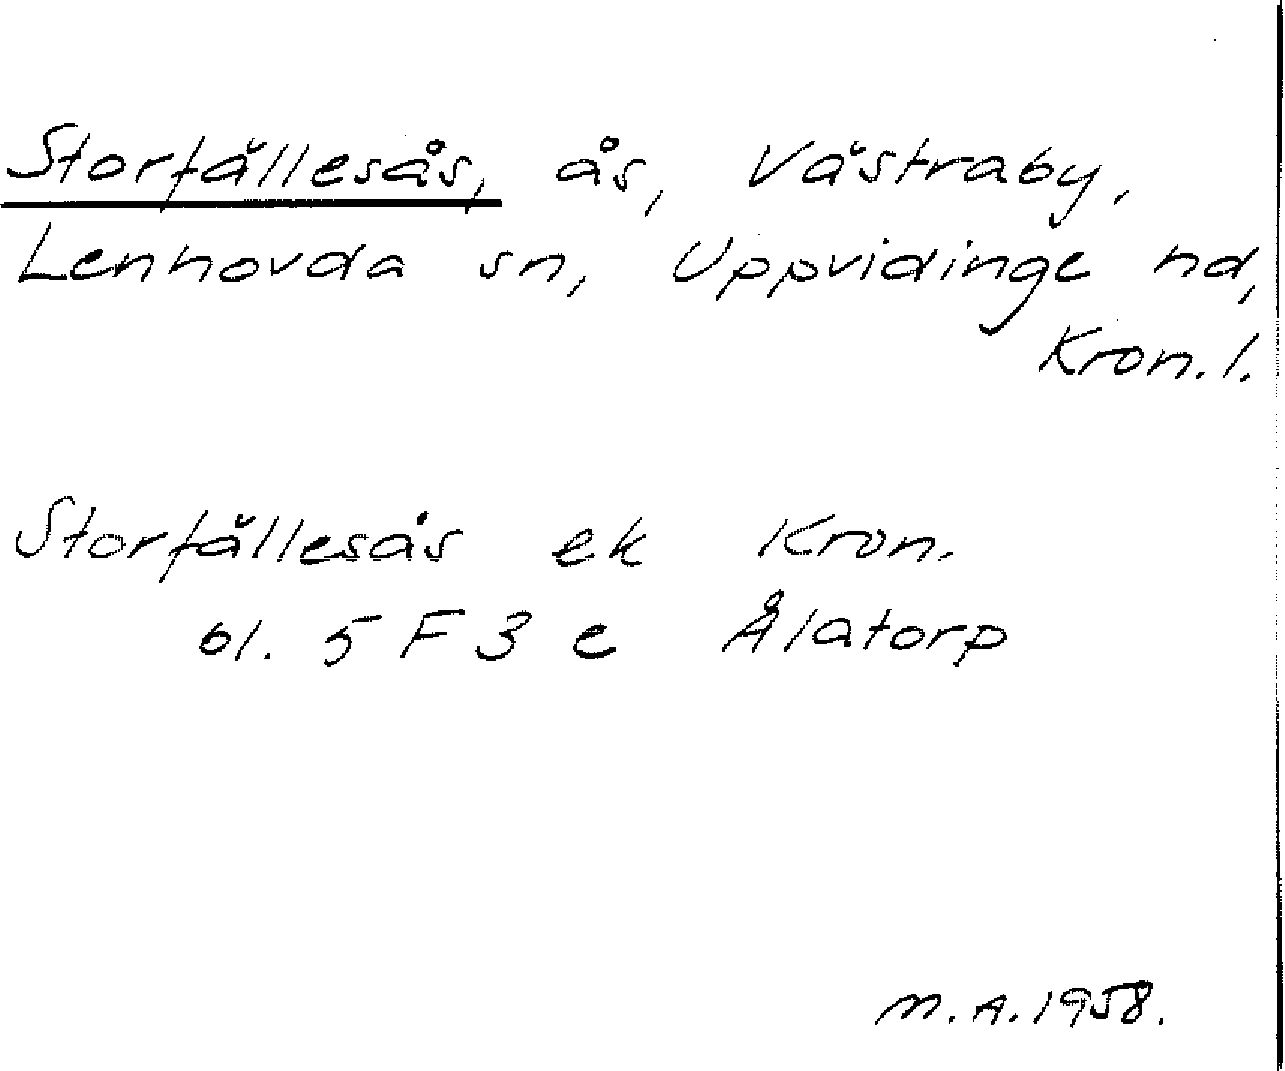 Storfällesås, ås, Västraby,
Lenhovda sn, Uppvidinge hd,
Kron. l.
Storfällesås ek Kron.
bl. 5 F 3 e Ålatorp
M. A. 1958.